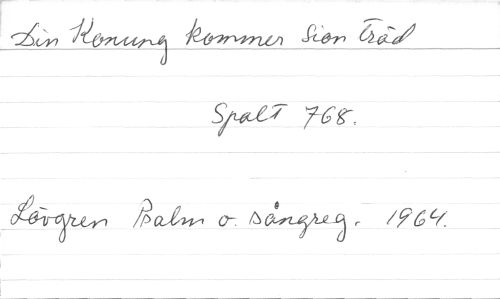 Din Konung kommer Sion träd
Spalt 768.
Lövgren Psalm o. sångreg. 1964.